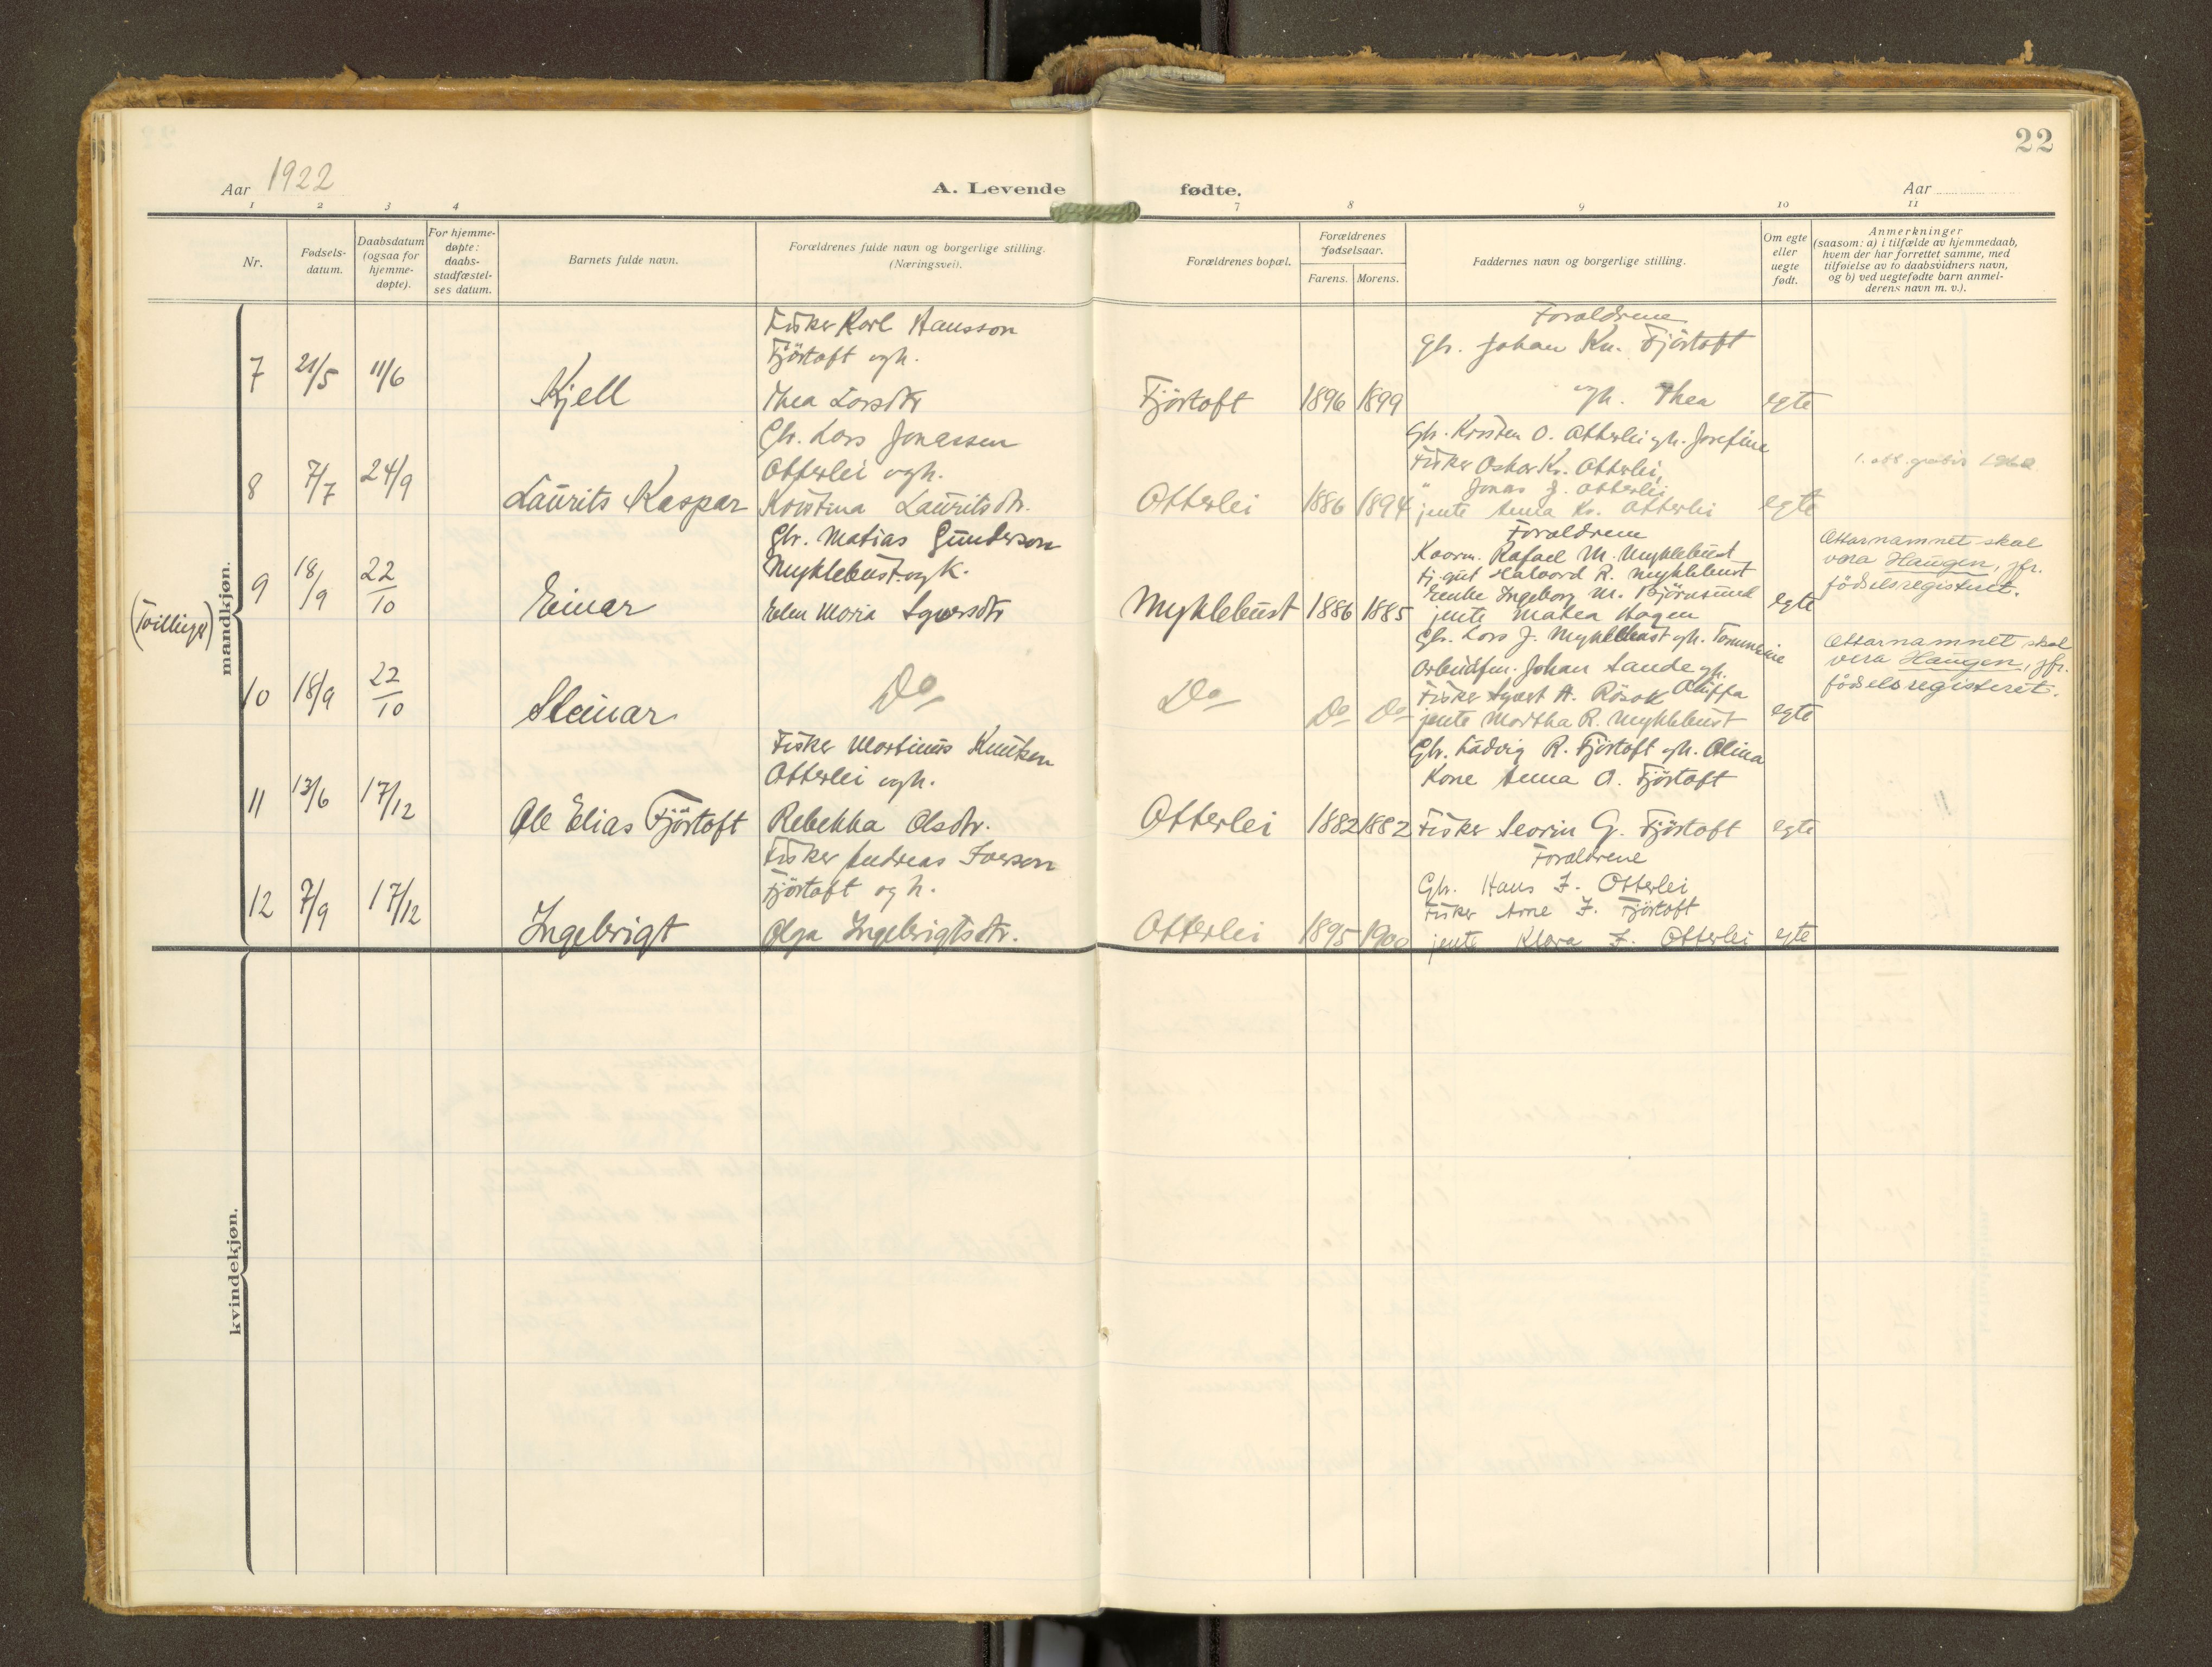 22
Aar 1922
A. Levende fødte.
Aar
1 2 3 4 7 8 9 10 11
Nr.
Fødsels-
datum.
Daabsdatum
(ogsaa for
hjemme-
døpte).
For hjemme-
døpte:
daabs-
stadfæstel-
ses datum.
Barnets fulde navn.
Forældrenes fulde navn og borgerlige stilling.
(Næringsvei).
Forældrenes bopæl.
Forældrenes
fødselsaar.
Farens. Morens.
Faddernes navn og borgerlige stilling.
Om egte
eller
uegte
født.
Anmerkninger
(saasom: a) i tilfælde av hjemmedaab,
hvem der har forrettet samme, med
tilføielse av to daabsvidners navn,
og b) ved uegtefødte barn anmel-
derens navn m. v.).
mandkjøn.
7 21/5 11/6 Kjell
Fisker Karl Hansson
Fjörtoft ogh.
Thea Larsdtr
Fjörtoft 1896 1899
Foraldrene
Gbr. Johan Kn. Fjörtoft
ogh. Thea
egte
8 7/7 24/9 Laurits Kaspar
Gbr. Lars Jonassen
Otterlei ogh.
Kristina Lauritsdtr.
Otterlei 1886 1894
Gbr. Kristen O. Otterlei gh. Josefine
Fisker Oskar Kr. Otterlei
" Jonas J. Otterlei
jente Anna Kr. Otterlei
egte
1. att. gratis
(Tvillinger)
9 18/9 22/10 Einar
Gbr. Matias Gunderson
Myklebust ogk.
Elen Maria Syversdtr
Myklebust 1886 1885
Foraldrene
Kaarm. Rafael M. Myklebust
Halvard R. Myklebust
Enke Ingeborg M. Björnsund
jente Matea Hagen
egte
Ættarnamnet skal
vera Haugen, jfr.
födselsregisteret.
10 18/9 22/10 Steinar
Do
Do Do Do
Gbr. Lars J. Myklebust gh. Tommine
Arbeidsfm. Johan Sande gh.
Fisker Syvert A. Rösok
jente Martha R. Myklebust
egte
Ættarnamnet skal
vera Haugen, jfr.
födselsregisteret.
11 13/6 17/12 Ole Elias Fjörtoft
Fisker Martinus Knutsen
Otterlei ogh.
Rebekka Olsdtr.
Otterlei 1882 1882
Gbr. Ludvig R. Fjörtoft gh. Olina
Kone Anna O. Fjörtoft
Fisker Severin G. Fjörtoft
egte
12 7/9 17/12 Ingebrigt
Fisker Andreas Iverson
Fjörtoft og h.
Olga Ingebrigtsdtr.
Otterlei 1895 1900
Foraldrene
Gbr. Hans I. Otterlei
Fisker Arne I. Fjörtoft
jente Klara I. Otterlei
egte
kvindekjøn.